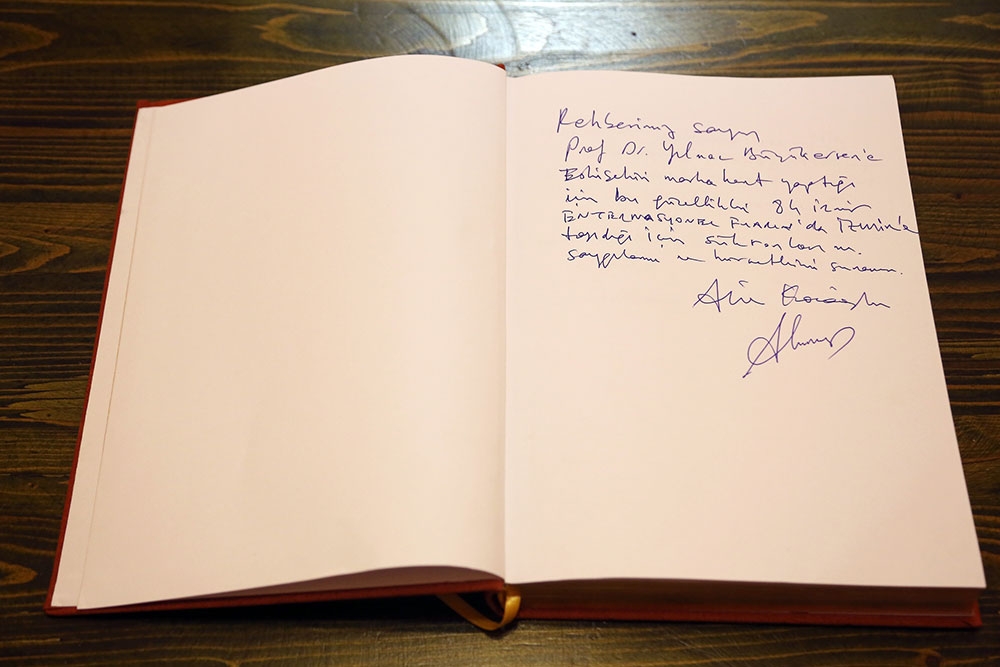 Rehberimiz sayın
Prof Dr. Yılmaz Büyükerşen'e
Eskişehiri marka kent yaptığı
için bu güzellikleri 84 İzmir
ENTERNASYONEL FUARIN'da İzmir'e
taşıdığı için şükranlarımı.
saygılarımı ve hürmetlerimi sunarım.
Aziz Kocaoğlu